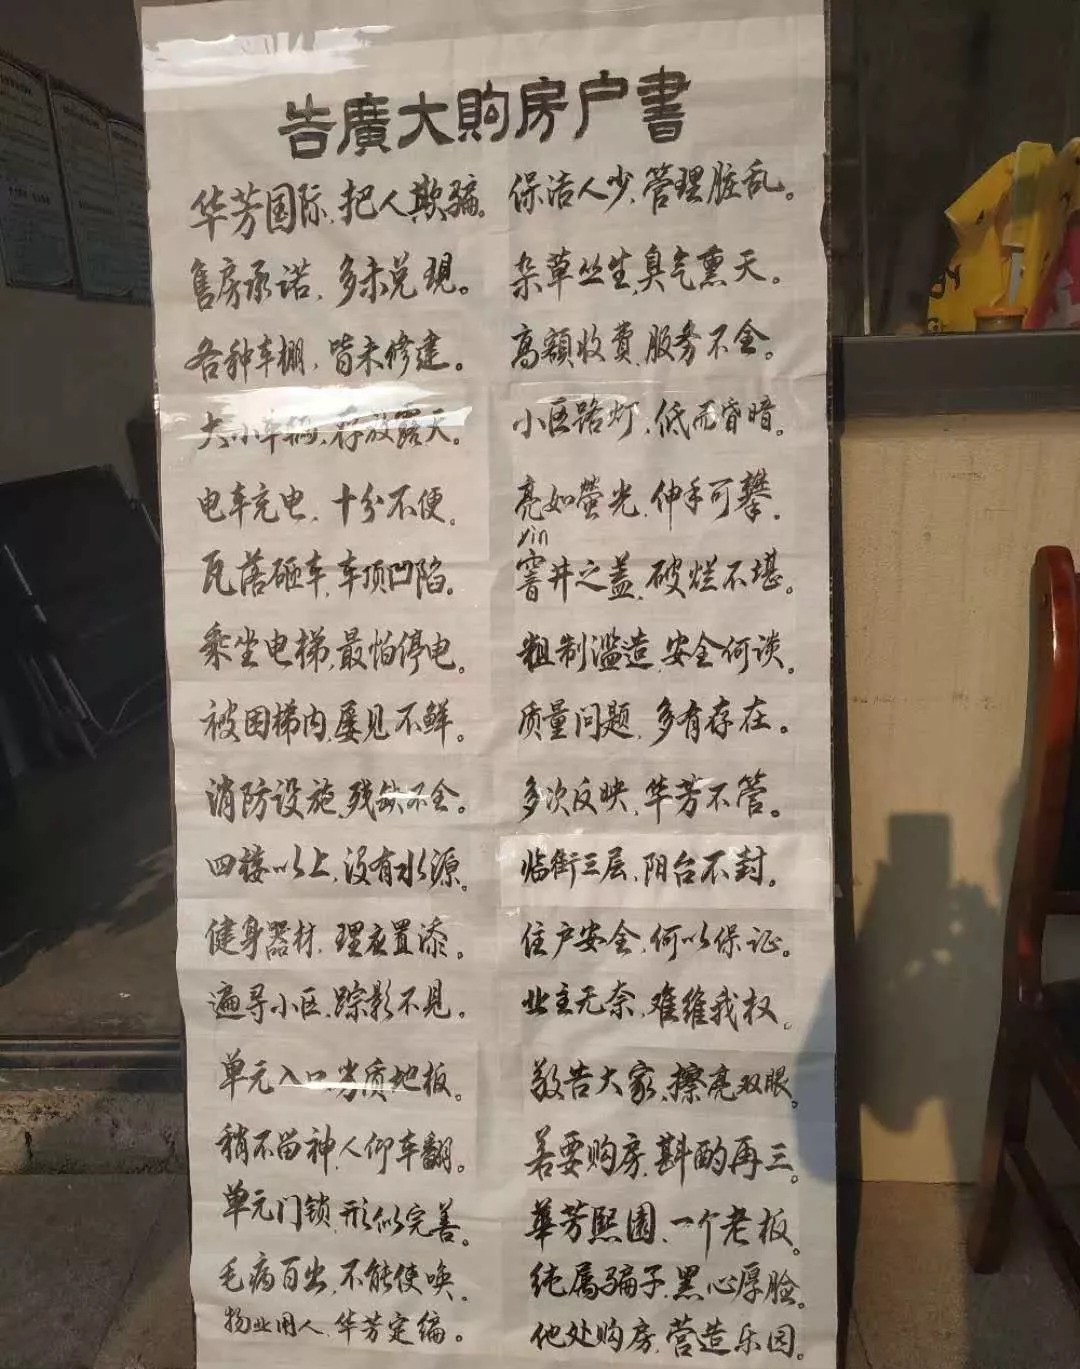 告廣大購房户書
华芳国际,把人欺骗。
售房承诺,多未兑现。
各种车棚,皆未修建。
大小车辆,存放露天。
电车充电,十分不便。
瓦落砸车,车顶凹陷。
乘坐电梯,最怕停电。
被困梯内,屡见不鲜。
消防设施,残缺不全。
四楼以上,没有水源。
健身器材,理应置添。
遍寻小区,踪影不见。
单元入口,劣质地板。
稍不留神,人仰车翻。
单元门锁,形似完善。
毛病百出,不能使唤。
物业用人,华芳定编。
保洁人少,管理脏乱。
杂草丛生,臭气熏天。
高额收费,服务不全。
小区路灯,低而昏暗。
亮如萤光,伸手可攀。
yin
窨井之盖,破烂不堪。
粗制滥造,安全何谈。
质量问题,多有存在。
多次反映,华芳不管。
临街三层,阳台不封。
住户安全,何以保证。
业主无奈,难维我权。
敬告大家,擦亮双眼。
若要购房,斟酌再三。
華芳熙園,一个老板。
纯属骗子,黑心厚脸。
他处购房,营造乐园。